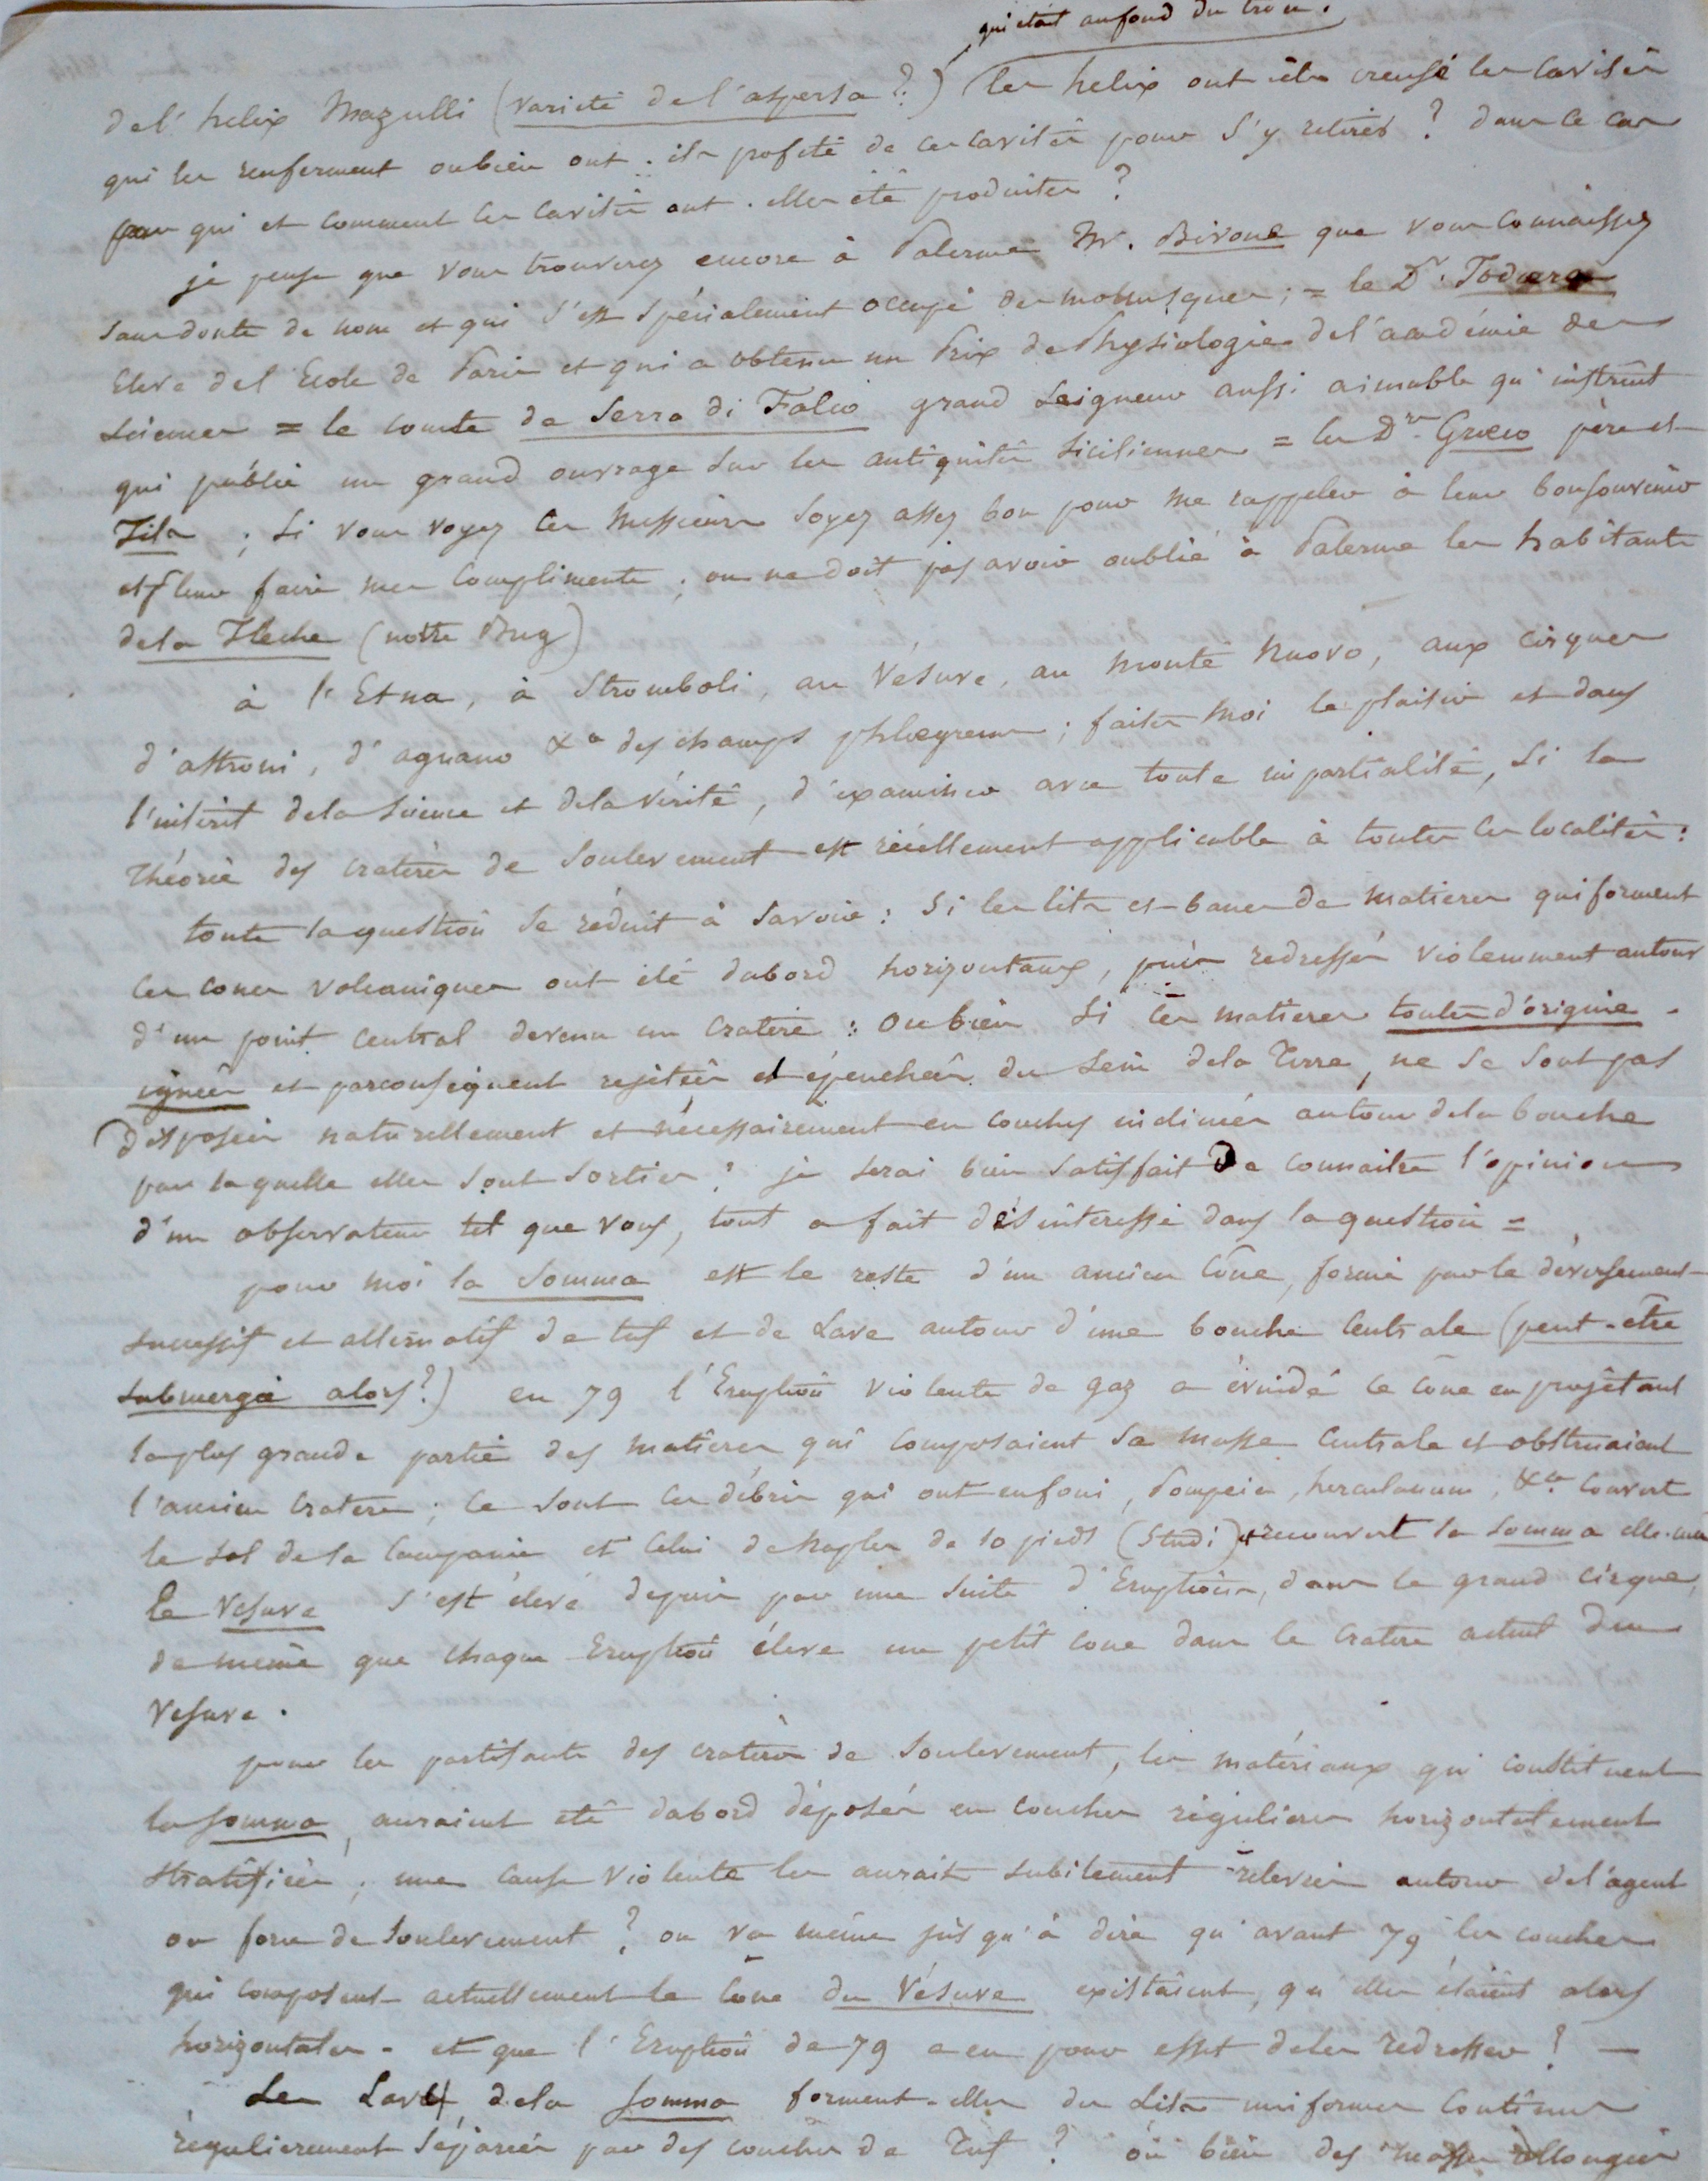 qui était au fond du trou.
de l'helix Mazulli (varieté de l'aspersa ?) les helix ont ils creusé les cavités
qui les renferment oubien ont-ils profité de ces cavités pour s'y retirer ? dans ce cas
par qui et comment ces cavités ont-elles été produites ?
je pense que vous trouverez encore à Palerme Mr. Bivone que vous connaissez
sans doute de nom et qui s'est spécialement occupé des mollusques ; = le Dr. Todaro
Eleve de l'Ecole de Paris et qui a obtenu un Prix de Physiologie de l'académie des
sciences = le comte de Serra di Falco grand seigneur aussi aimable qu'instruit
qui publie un grand ouvrage sur les antiquités siciliennes = les Drs Greco père et
Fils ; si vous voyez ces Messieurs soyez assez bon pour me rappeler à leur bon souvenir
et leur faire mes compliments ; on ne doit pas avoir oublié à Palerme les habitants
de la Fleche (notre Brig)
à l'Etna, à Stromboli, au Vésuve, au monte Nuovo, aux cirques
d'astroni, d'agnano &a des champs phlegreens ; faites moi le plaisir et dans
l'intérêt de la science et de la vérité, d'examiner avec toute impartialité, si la
théorie des cratères de soulevement est réellement applicable à toutes ces localités :
toute la question se réduit à savoir : si les lits et bancs de matieres qui forment
ces cones volcaniques ont été dabord horizontaux, puis redressés violemment autour
d'un point central devenu un cratère : oubien si ces matieres toutes d'origine
ignées et parconséquent rejetées et épenchées du sein de la Terre, ne se sont pas
disposées naturellement et nécessairement en couches inclinées autour de la bouche
par laquelle elles sont sorties ? je serai bien satisfait de connaitre l'opinion
d'un observateur tel que vous, tout a fait désintéressé dans la question =
pour moi la Somma est le reste d'un ancien Cône, formé par le déversement
successif et alternatif de tuf et de Lave autour d'une bouche centrale (peut-être
submergée alors ?) en 79 l'Eruption violente de gaz a évuidé ce cône en projetant
la plus grande partie des matières qui composaient sa masse centrale et obstruaient
l'ancien cratere ; ce sont ces débris qui ont enfoui, Pompeia, herculanum, &a couvert
le sol de la Campanie et celui de Naples de 10 pieds (Studi) & recouvert la Somma elle-même
le Vesuve s'est élevé depuis par une suite d'Eruptions, dans le grand cirque,
de même que chaque Eruption éleve un petit cone dans le cratere actuel du
Vesuve.
pour les partisants des cratères de soulevement, les matériaux qui constituent
la Somma, auraient eté dabord déposés en couches régulieres horizontalement
stratifiées ; une cause violente les aurait subitement relevées autour de l'agent
ou force de soulevement ? on va même jusqu'à dire qu'avant 79 les couches
qui composent actuellement le cône du Vésuve existaient, qu'elles étaient alors
horizontales - et que l'Eruption de 79 a eu pour effet de les redresser ! —
Les Laves de la Somma forment-elles des Lits uniformes continus
régulierement séparées par des couches de Tuf ? ou bien des masses allongées